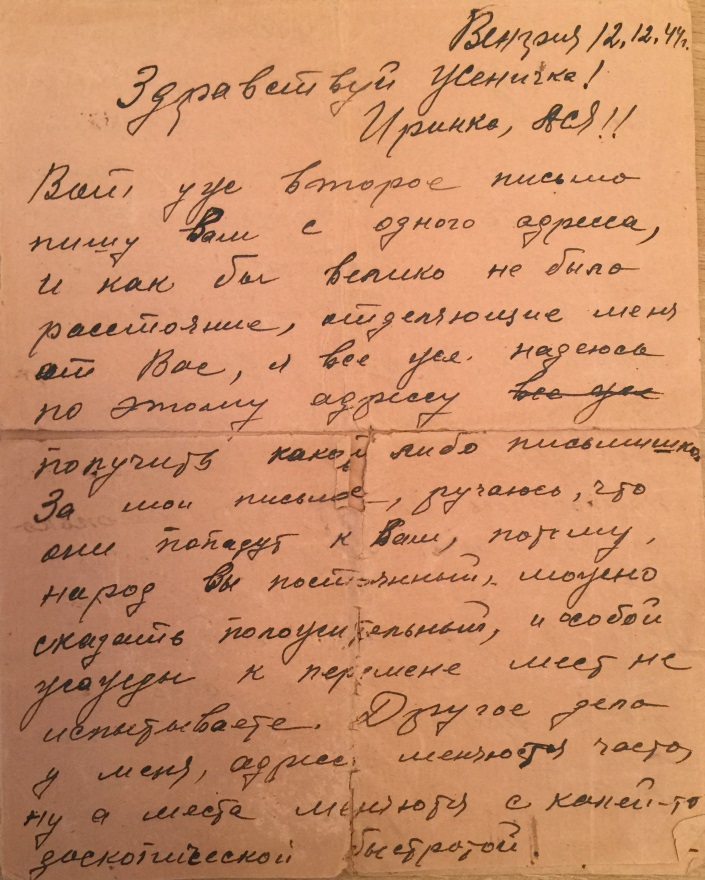 Венгрия 12.12.44г.
Здравствуй Женичка!
Иринка, Ася!!
Вот уже второе письмо
пишу Вам с одного адресса,
и как бы велико не было
расстояние, отделяющие меня
от Вас, я все же надеюсь
по этому адрессу все же
получить какой либо письмишко.
За мои письма, ручаюсь, что
они попадут к Вам, потому,
народ Вы постоянный, можно
сказать положительный, и особой
жажды к перемене мест не
испытываете. Другое дело
у меня, адреса меняются часто,
ну а места меняются с какей-то
доскопической быстротой.